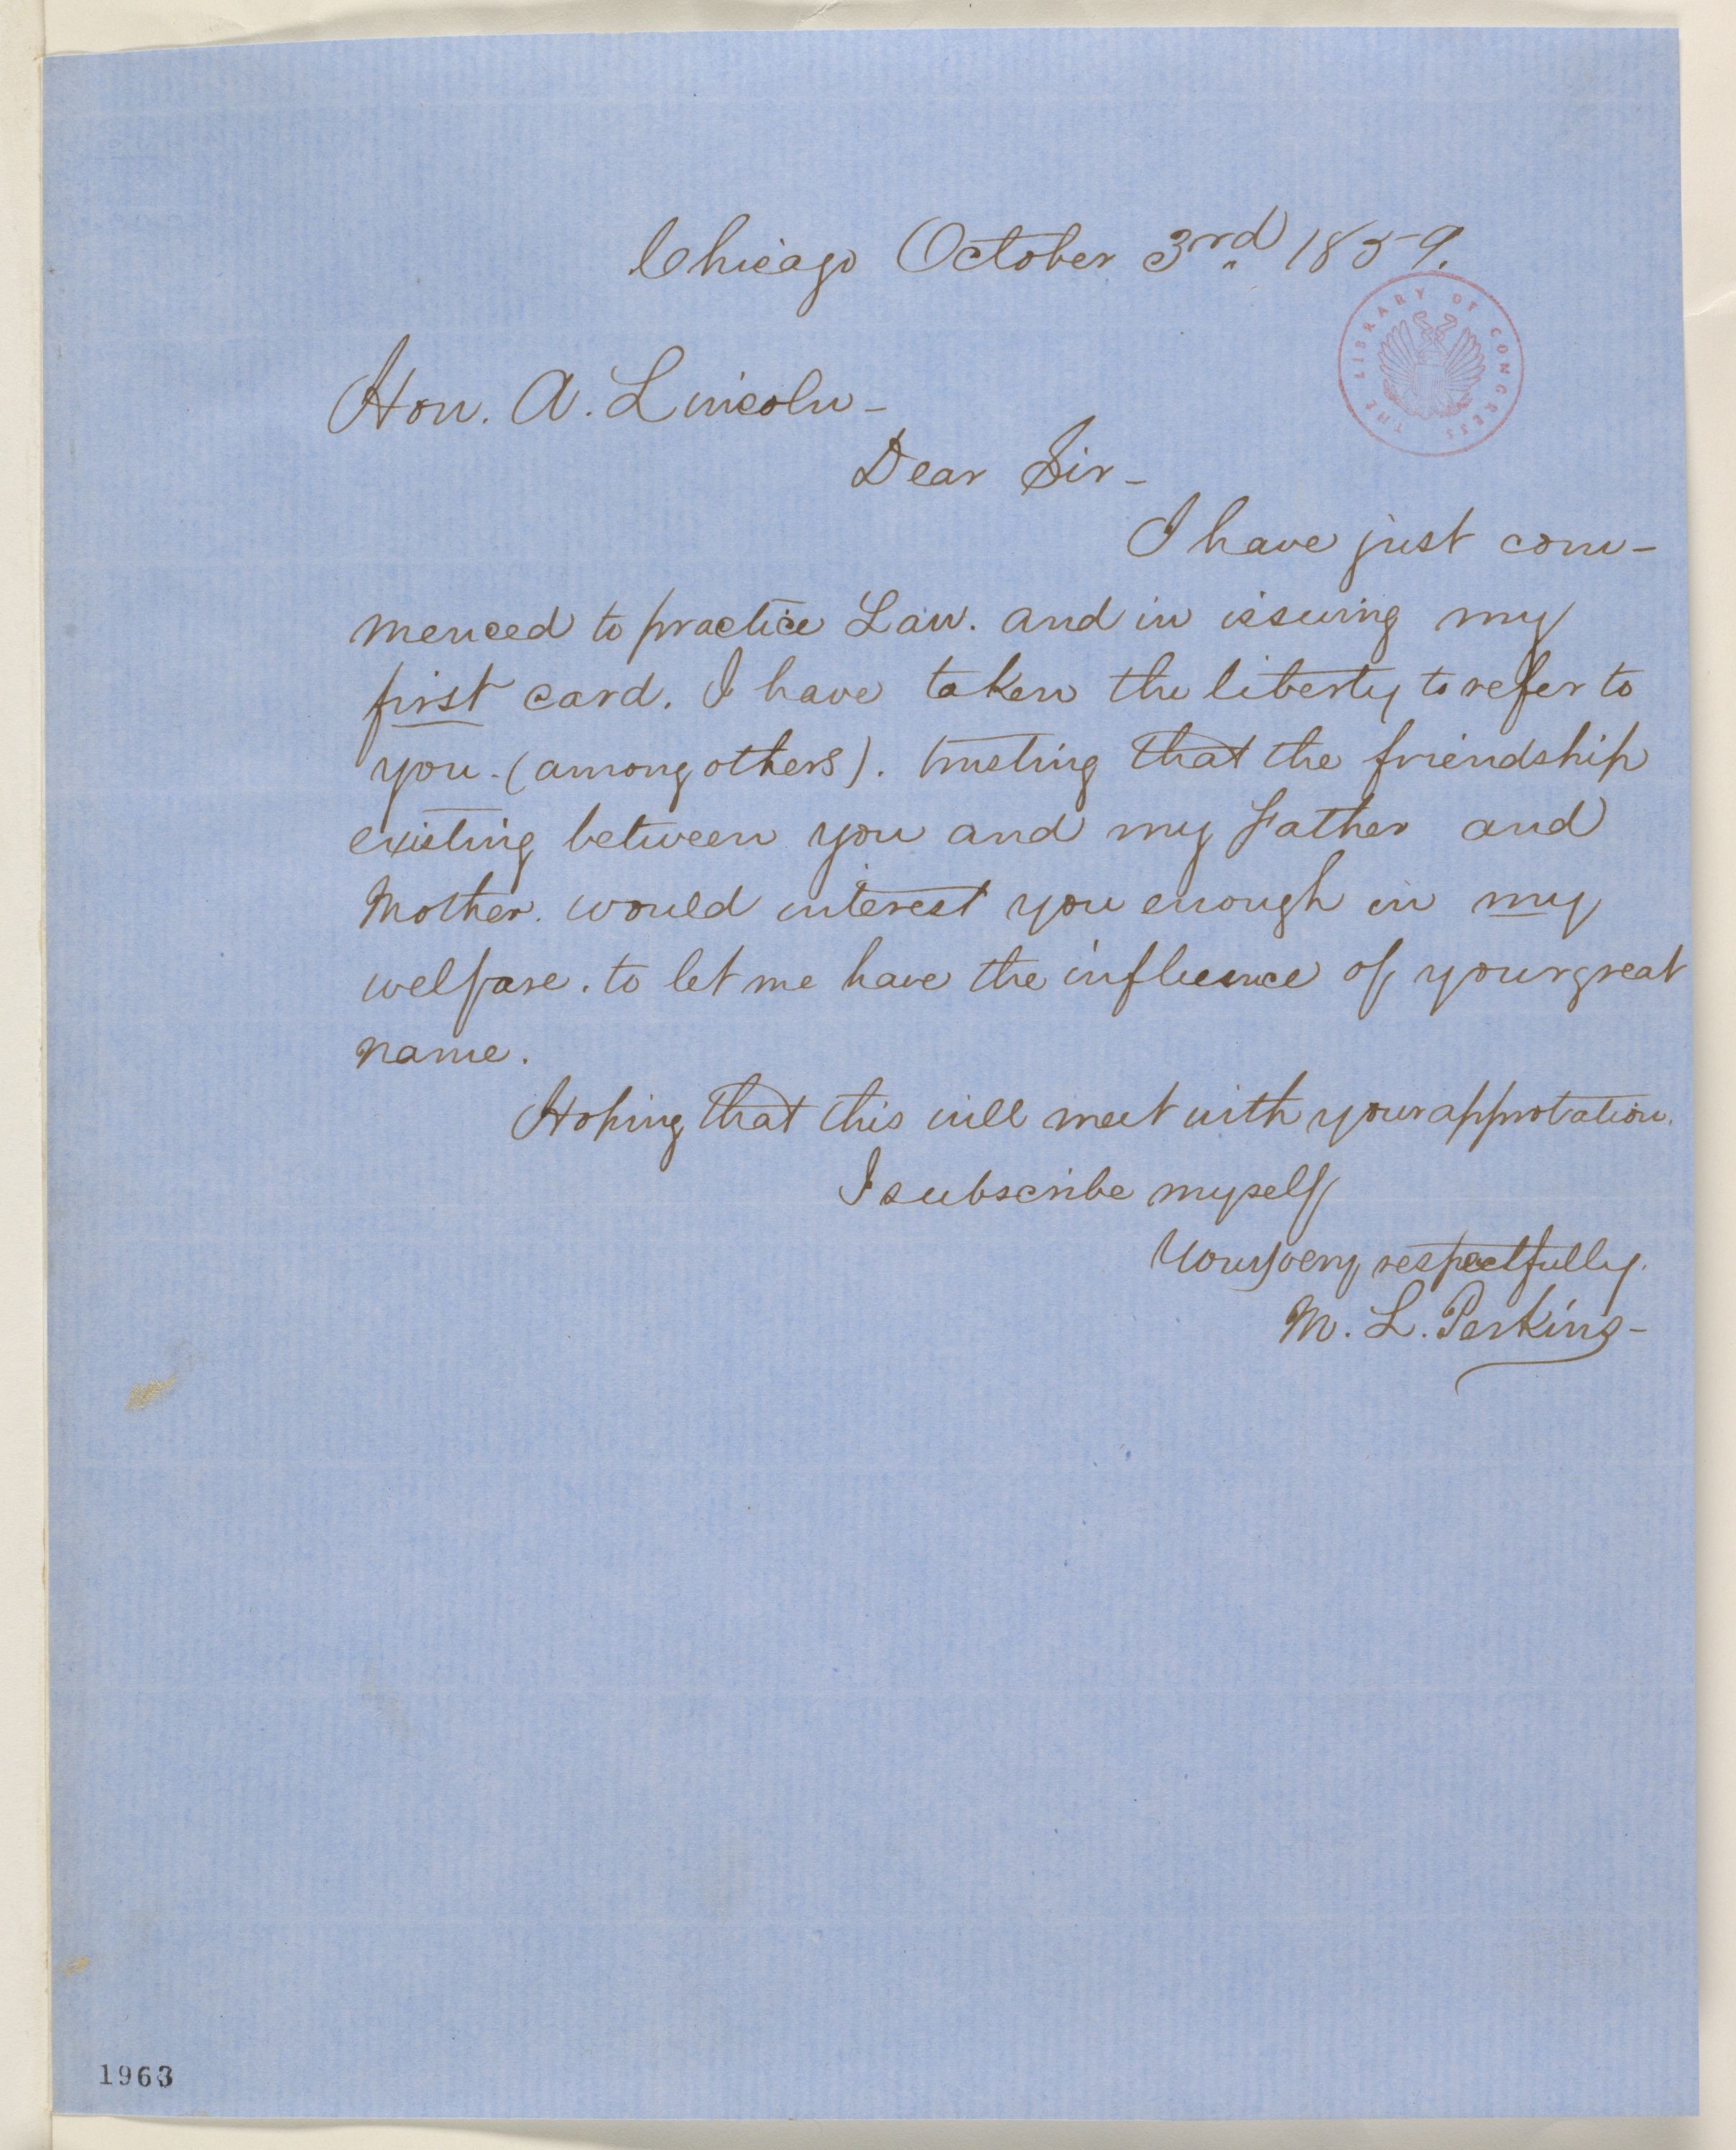 Chicago October 3rd 1859.
THE LIBRARY OF CONGRESS
Hon. A. Lincoln -
Dear Sir -
I have just com-
menced to practice Law. and in issuing my
first card. I have taken the liberty to refer to
you. (among others). trusting that the friendship
existing between you and my Father and
Mother. would interest you enough in my
welfare. to let me have the influence of your great
name.
Hoping that this will meet with your approbation.
I subscribe myself
Yours very respectfully.
M. L. Perkins -
1963